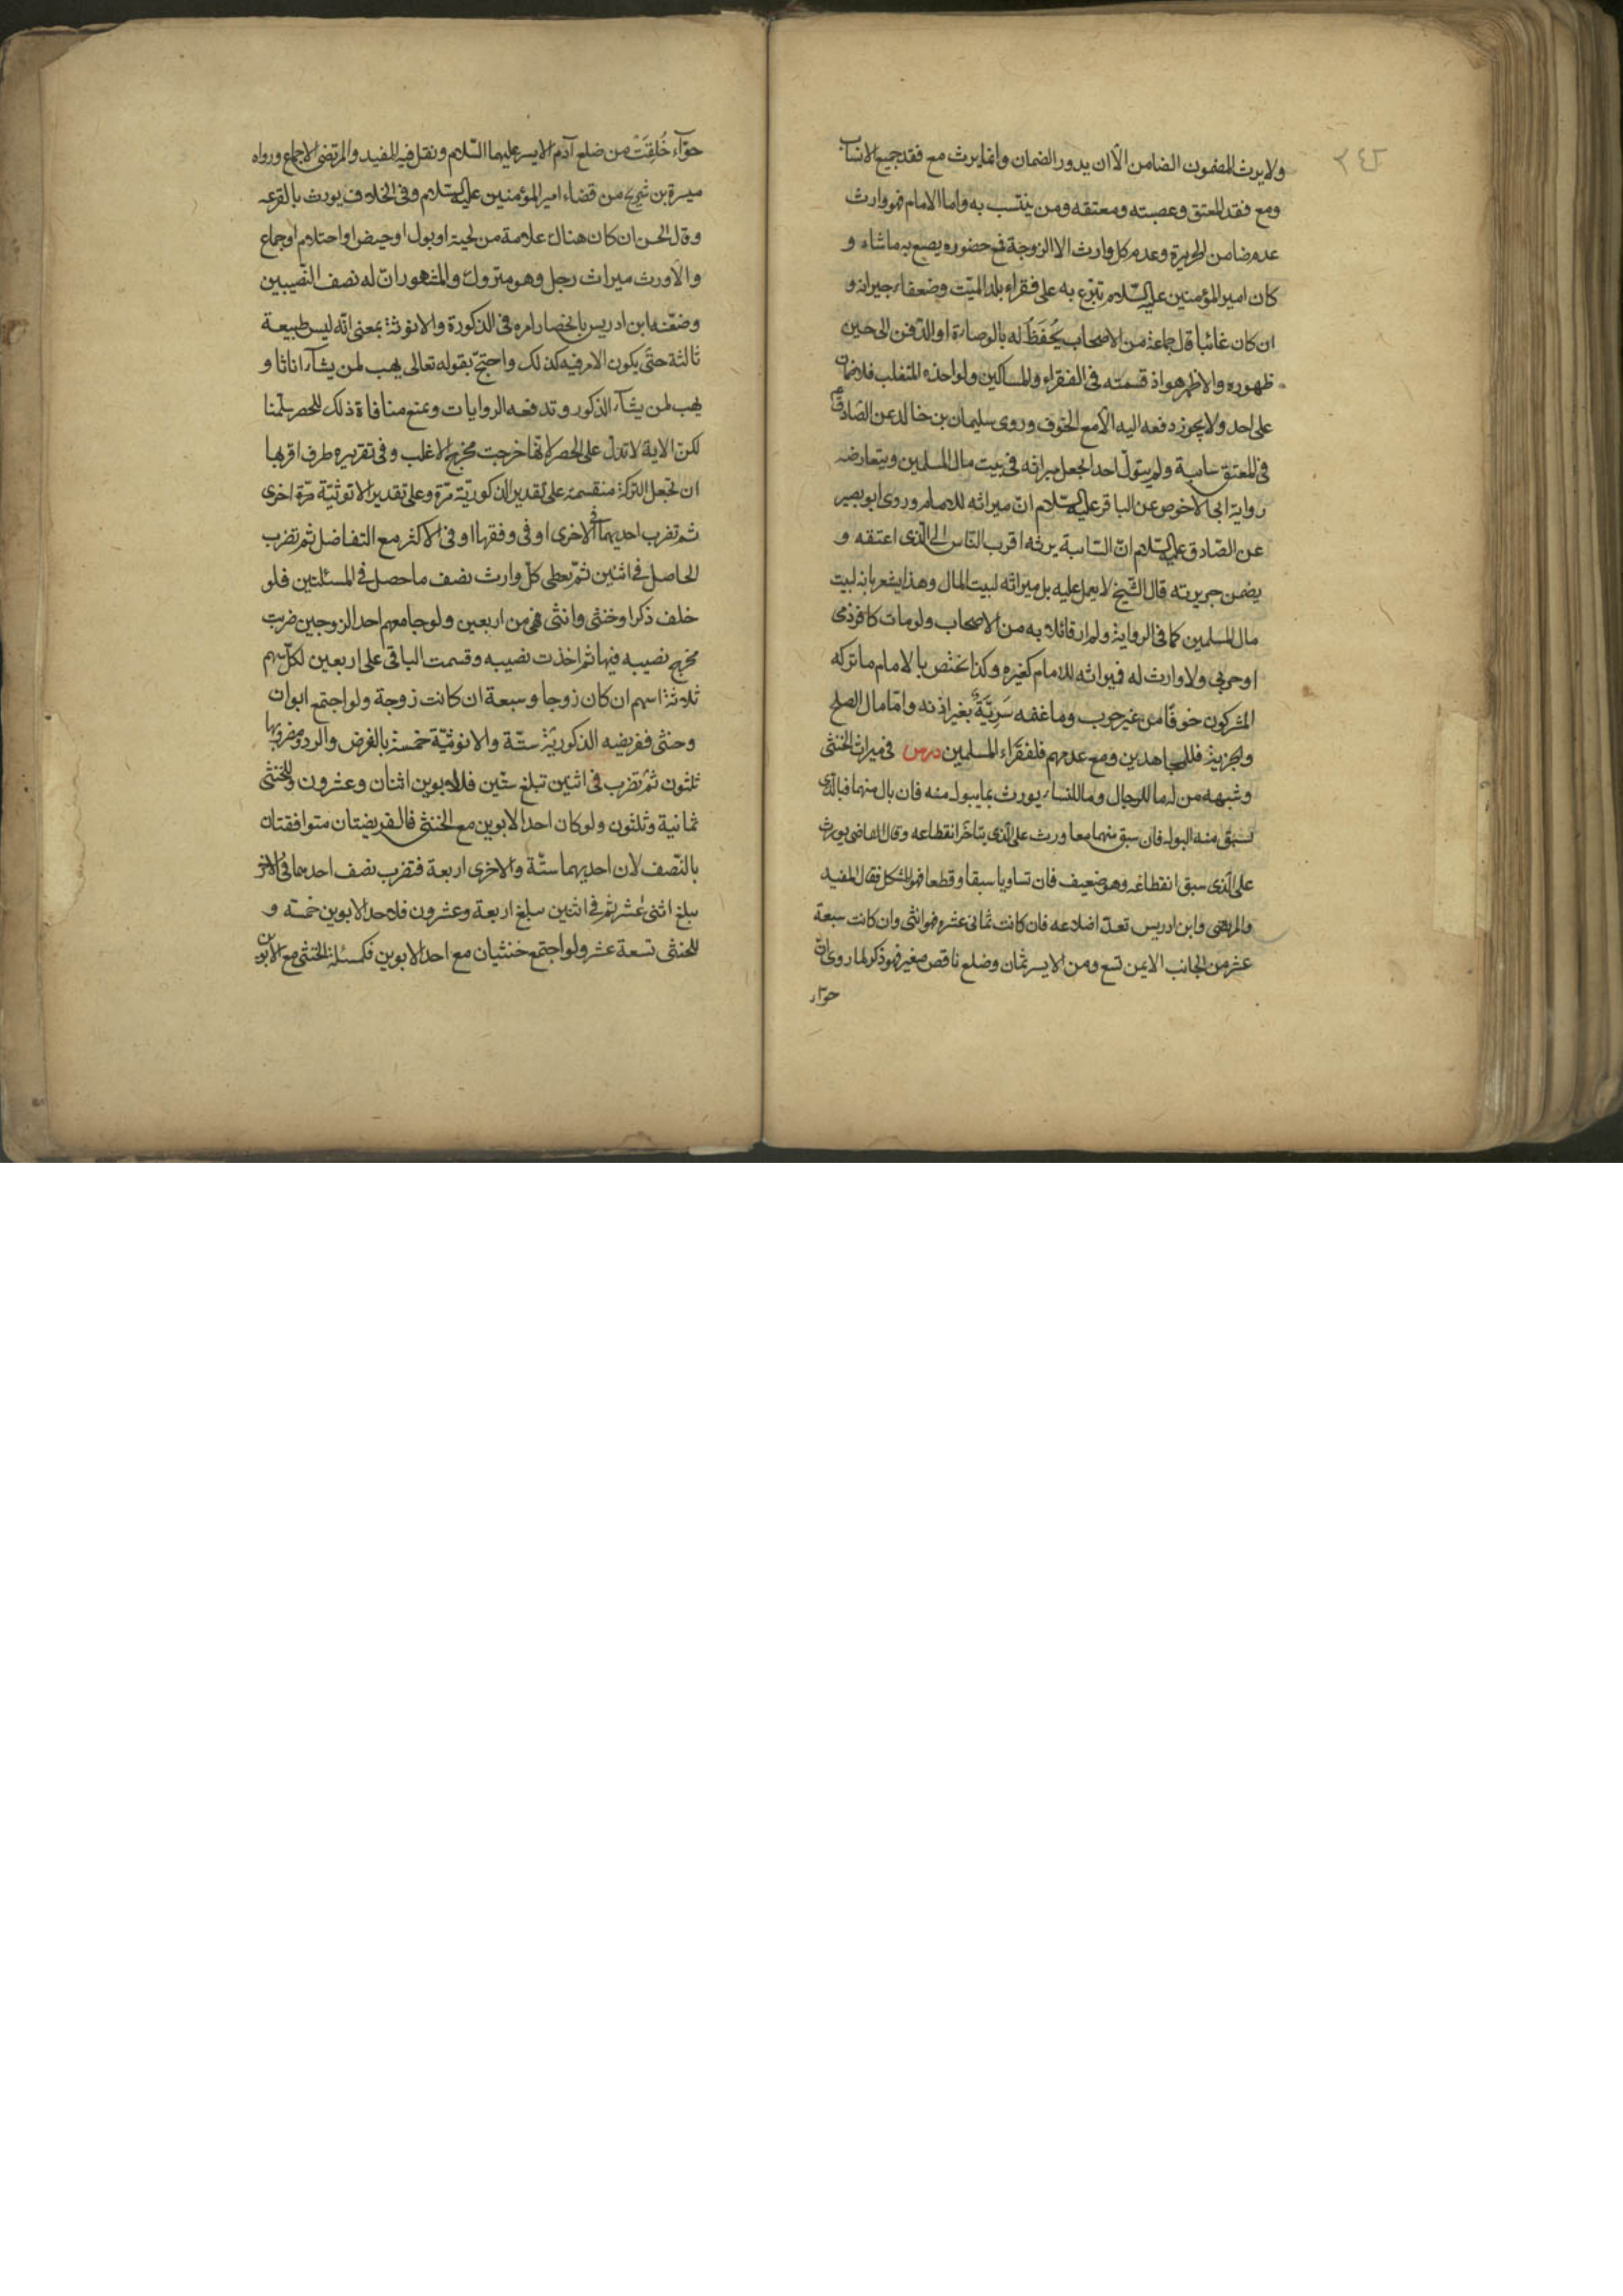 ٢٤٢
ولا يرث المضمون الضامن الّا ان يدور الضمان وانما يرث مع فقد جميع الانساب
ومع فقد المعتق وعصبته ومعتقه ومن ينتسب به واما الامام فهو وارث
عدم ضامن الجريرة وعدم كل وارث الا الزوجة فمع حضوره يصنع به ماشاء و
كان امير المؤمنين عليه السّلام تبرّع به على فقراء بلد الميّت وضعفاء جيرانه و
ان كان غائبا قال جماعة من الاصحاب يُحْفَظُ له بالوصاة او الدّفن الى حين
ظهوره والاظهر جواز قسمته فى الفقراء والمساكين ولو اخذه المتغلب فلا ضمان
على احد ولا يجوز دفعه اليه الّا مع الخوف وروى سليمان بن خالد عن الصّادق ع
فى المعتق سايبة ولم يتولّ احدا يجعل ميراثه فى بيت مال المسلمين ويتعارضه
رواية ابى الاخوص عن الباقر عليه السّلام انّ ميراثه للامام وروى ابو بصير
عن الصّادق عليه السّلام انّ السّايبة يرثه اقرب النّاس الى الّذى اعتقه و
يضمن جريرته قال الشّيخ لا يعمل عليه بل ميراثه لبيت المال وهذا يشعر بانه لبيت
مال المسلمين كما فى الرواية ولم ار قائلا به من الاصحاب ولو مات كافر ذمى
او حربى ولا وارث له فميراثه للامام كغيره وكذا يختص بالامام ما تركه
المشركون خوفًا من غير حرب وما غنمه سَرِيَّةٌ بغير اذنه وامّا مال الصلح
والجزية فللمجاهدين ومع عدمهم فلفقراء المسلمين درس فى ميراث الخنثى
وشبهه من له ما للرجال وما للنساء يورث بما يبول منه فان بال منهما فبالّذى
تسبق منه البول فان سبق منهما معا ورث على الّذى يتاخّر انقطاعه وقال القاضى يورث
على الّذى سبق انقطاعه وهو ضعيف فان تساويا سبقا وقطعا فهو المشكل فقال المفيد
والمرتضى وابن ادريس تعدّ اضلاعه فان كانت ثمانى عشره فهو انثى وان كانت سبعة
عشر من الجانب الايمن تسع ومن الايسر ثمان وضلع ناقص صغير فهو ذكر لما روى انّ
حوّاء
حوّآء خُلِقَتْ من ضلع آدم الايسر عليهما السّلام ونقل فيه المفيد والمرتضى الاجماع ورواه
ميسرة بن شريح من قضاء امير المؤمنين عليه السّلام وفى الخلاف يورث بالقرعه
وقال الحسن ان كان هناك علامة من لحية او بول او حيض او احتلام او جماع
والّا ورث ميراث رجل وهو متروك والمشهور انّ له نصف النّصيبين
وضعّفه ابن ادريس بانحصار امره فى الذكورة والانوثة بمعنى انّه ليس طبيعة
ثالثة حتّى يكون الامر فيه كذلك واحتجّ بقوله تعالى يهب لمن يشآء اناثا و
يهب لمن يشآء الذكور وتدفعه الروايات وبمنع منافاة ذلك للحصر سلّمنا
لكن الاية لا تدلّ على الحصر لانّها خرجت مخرج الاغلب وفى تقريره طرف اقربها
ان تجعل التركة منقسمة على تقدير الذكوريّة مرّة وعلى تقدير الانوثيّة مرّة اخرى
ثم تضرب احديهما فى الاخرى او فى وفقهما او فى الاكثر مع التفاضل ثم تضرب
الحاصل فى اثنين ثمّ يعطى كلّ وارث نصف ما حصل فى المسئلتين فلو
خلف ذكرا وخنثى وانثى فهى من اربعين ولو جامعهم احد الزوجين ضربت
مخرج نصيبه فيها ثم اخذت نصيبه وقسمت الباقى على اربعين لكلّ سهم
ثلاثة اسهم ان كان زوجا وسبعة ان كانت زوجة ولو اجتمع ابوان
وخنثى ففريضه الذكوريّة ستّة والانوثيّة خمسة بالفرض والرد ومضروبها
ثلثون ثم تضرب فى اثنين تبلغ ستّين فللابوين اثنان وعشرون وللخنثى
ثمانية وثلثون ولو كان احد الابوين مع الخنثى فالفريضتان متوافقتان
بالنّصف لان احديهما ستّة والاخرى اربعة فتضرب نصف احدهما فى الاخر
يبلغ اثنى عشر ثم فى اثنين يبلغ اربعة وعشرون فلاحد الابوين خمسته و
للخنثى تسعة عشر ولو اجتمع خنثيان مع احد الابوين فكمسئلة الخنثى مع الابوين